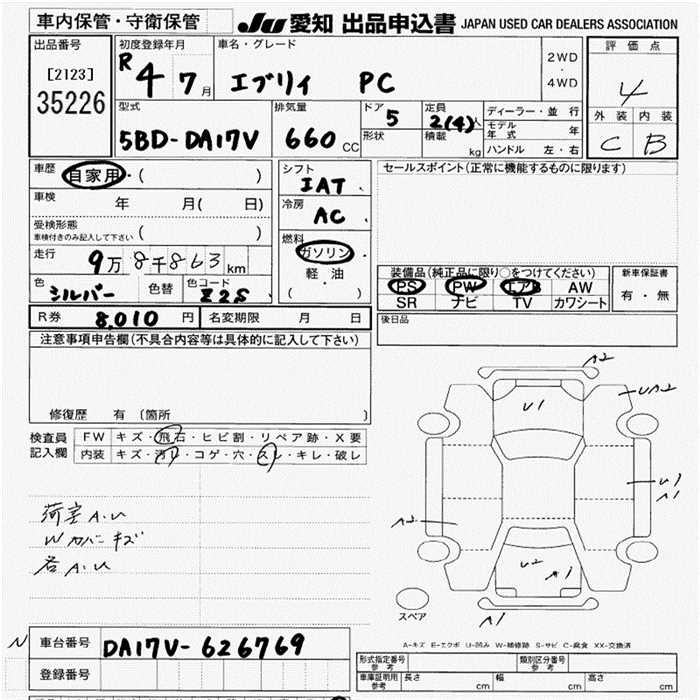 車内保管・守衛保管 JU 愛知 出品申込書 JAPAN USED CAR DEALERS ASSOCIATION
出品番号 初度登録年月 車名・グレード 2WD・4WD 評価点
[2123] R4 7月 エブリィ PC 4
35226
型式 排気量 ドア 定員 ディーラー・並行 外装 内装
5BD-DA17V 660CC 5 2(4)人 モデル年式 年 C B
形状 積載 kg ハンドル 左・右
車歴 自家用・( ) シフト IAT セールスポイント(正常に機能するものに限ります)
車検 年 月( 日) 冷房 AC
受検形態 ( )
車検付きのみ記入して下さい
燃料 ガソリン
走行 9万8千863km 軽・油
( ・ )
装備品(純正品に限り○をつけてください) 新車保証書
色 シルバー 色替 色コード Z2S PS PW エアB AW 有・無
SR ナビ TV カワシート
R券 8,010円 名変期限 月 日 後日品
注意事項申告欄(不具合内容等は具体的に記入して下さい)
修復歴 有 (箇所 )
検査員 FW キズ・飛石・ヒビ割・リペア跡・X要
記入欄 内装 キズ・汚レ・コゲ・穴・スレ・キレ・破レ
荷室A.U
Wカバーキズ
各A.U
A2
U1
UA2
U1
A1
A2
U2 A1
A1
スペア
A-キズ E-エクボ U-凹み W-補修跡 S-サビ C-腐食 XX-交換済
N 車台番号 DA17V-626769
登録番号
形式指定番号 参考 類別区分番号 参考
車庫証明用 参考 長さ cm 幅 cm 高さ cm